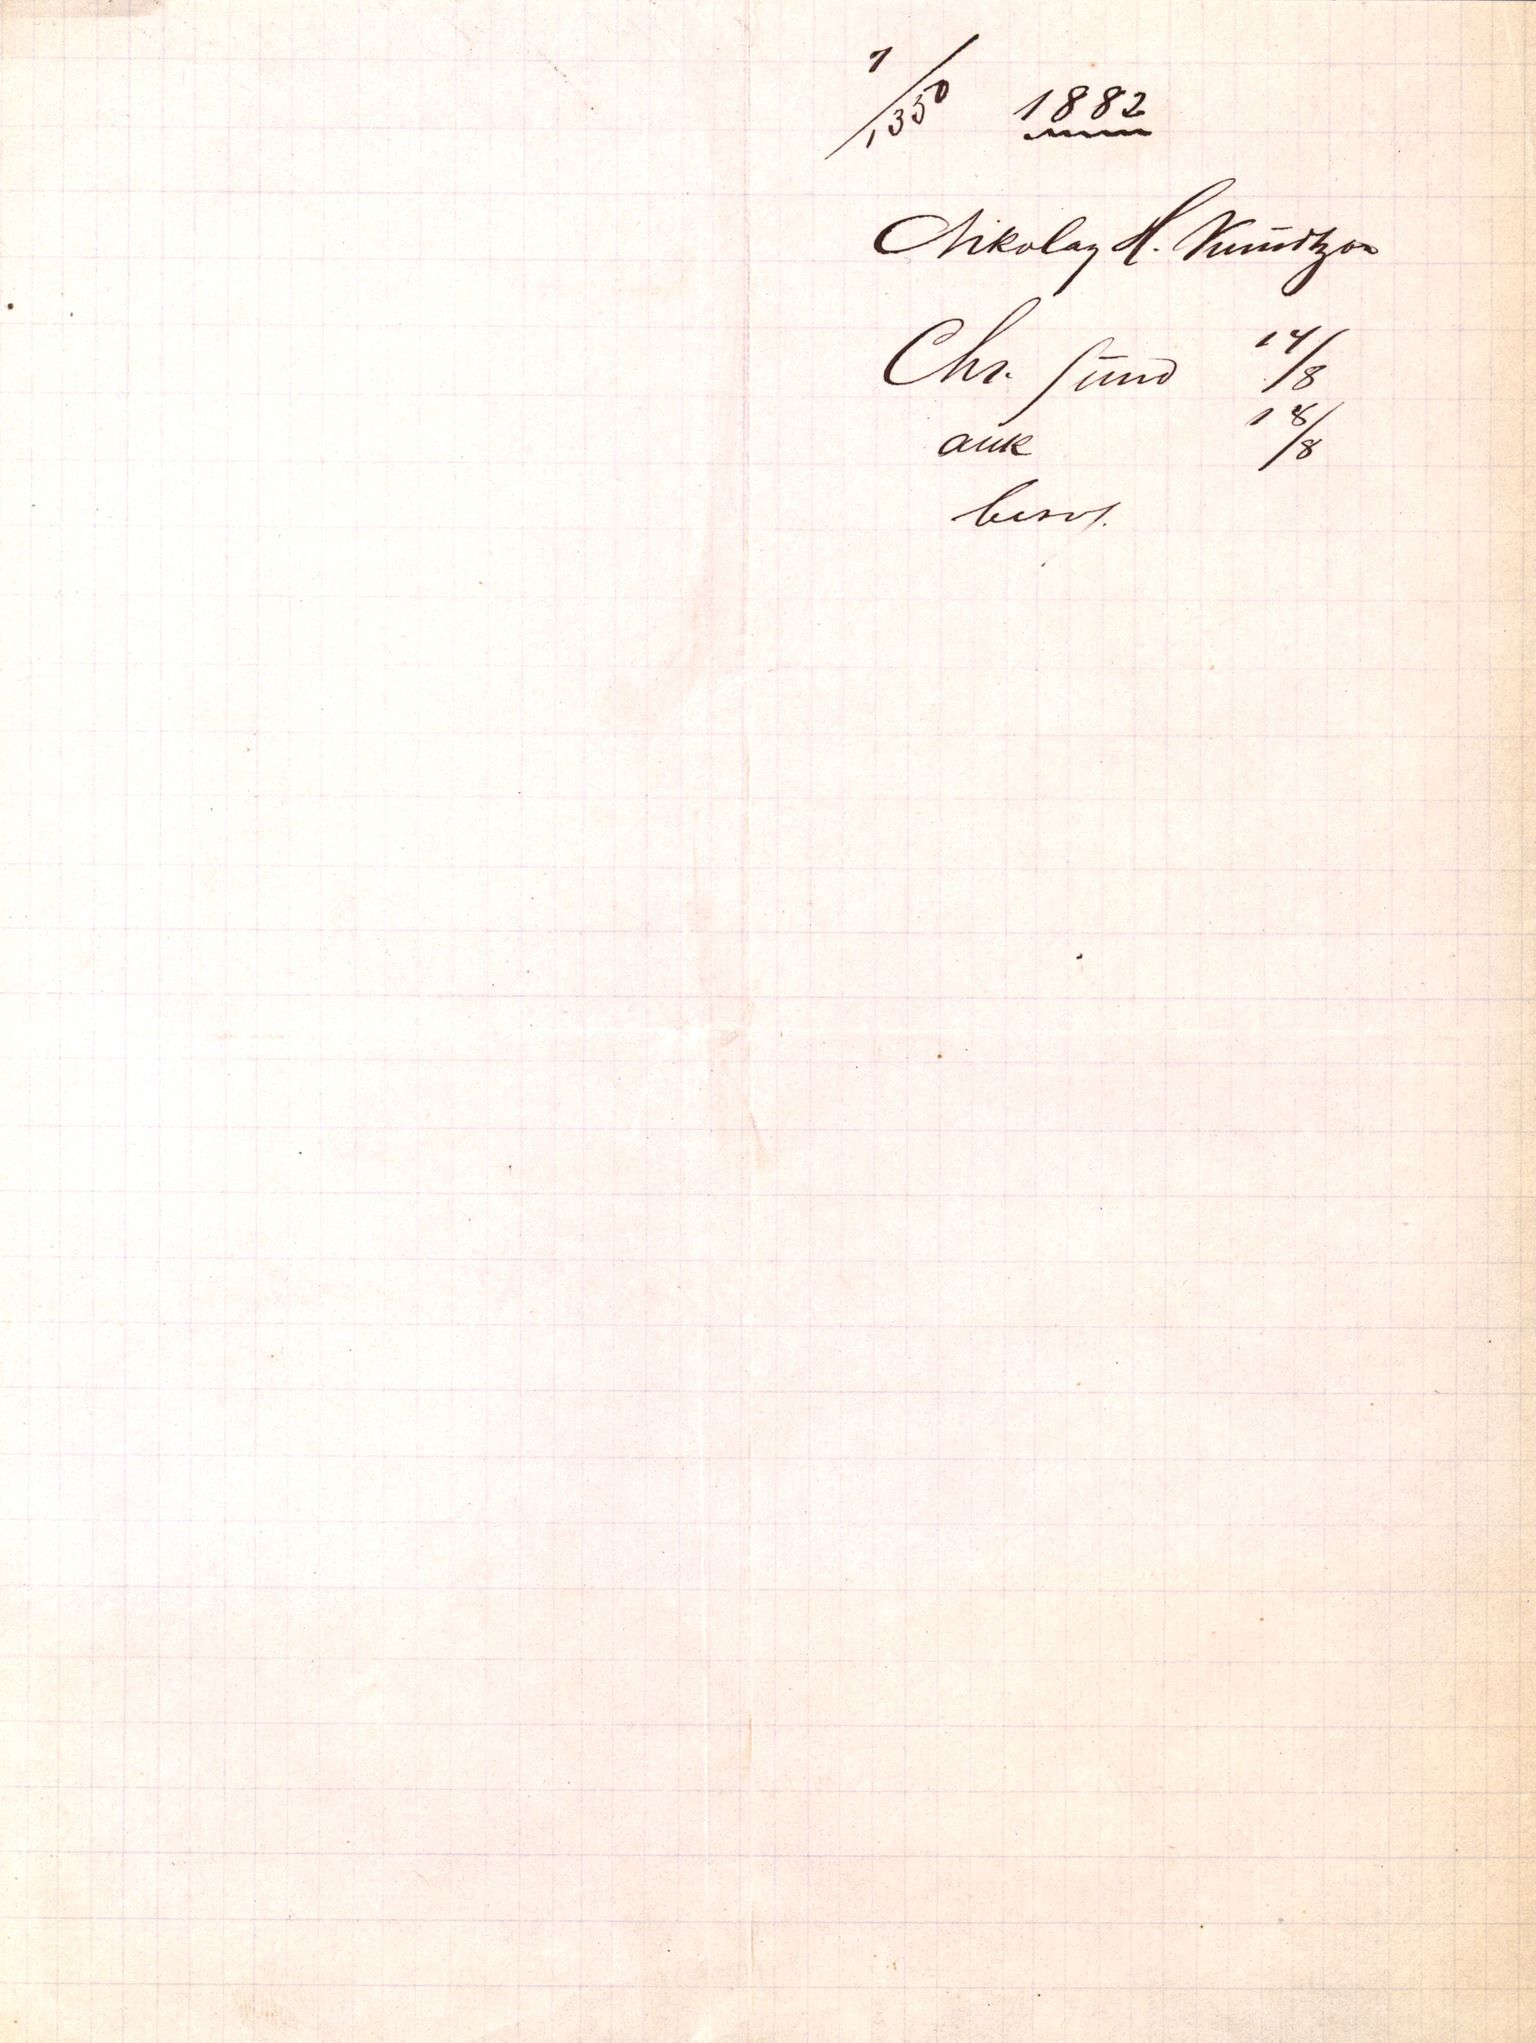 7/1350 1882
Nikolay H. Knudtzon
Chr. sund 14/8
ank 18/8
besv.